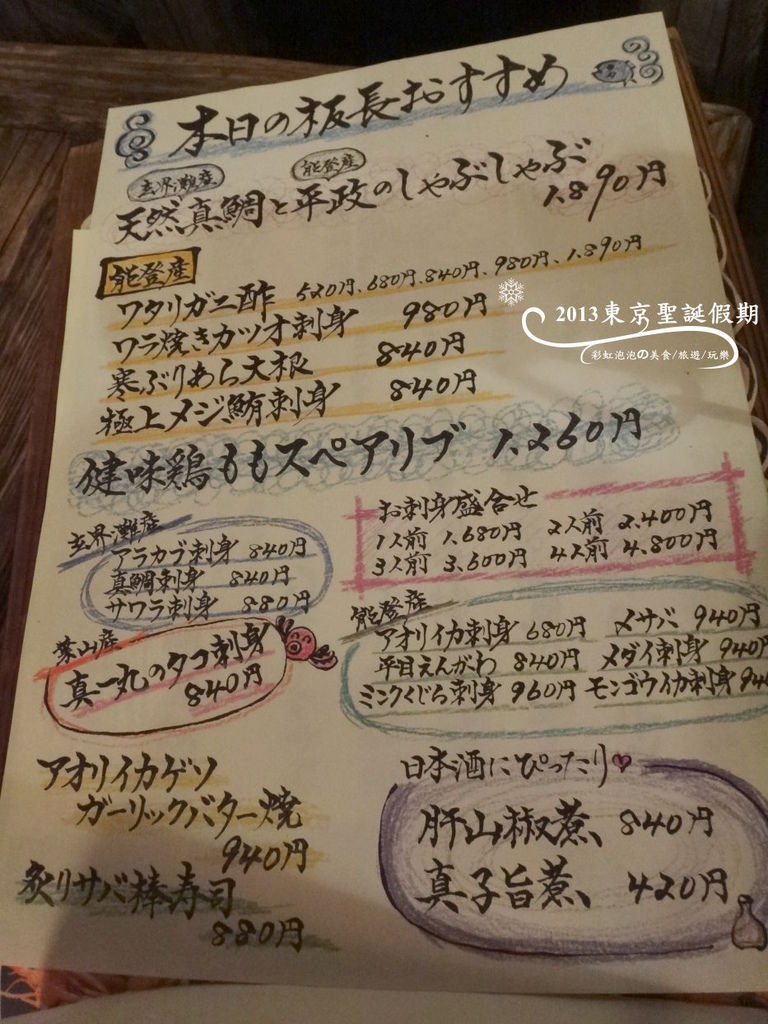 本日の板長おすすめ
玄界灘産 能登産
天然真鯛と平政のしゃぶしゃぶ
1.890円
能登産
ワタリガニ酢 520円、680円、840円、980円、1.890円
ワラ焼きカツオ刺身 980円
寒ぶりあら大根 840円
極上メジ鮪刺身 840円
2013東京聖誕假期
彩虹泡泡の美食/旅遊/玩樂
健味鶏ももスペアリブ 1.260円
お刺身盛合せ
1人前 1.680円 2人前 2.400円
3人前 3.600円 4人前 4.800円
玄界灘産
アラカブ刺身 840円
真鯛刺身 840円
サワラ刺身 880円
葉山産
真一丸のタコ刺身
840円
能登産
アオリイカ刺身 680円 メサバ 940円
平目えんがわ 840円 メダイ刺身 940円
ミンクくじら刺身 960円 モンゴウイカ刺身 94
アオリイカゲソ
ガーリックバター焼
940円
炙りサバ棒寿司
880円
日本酒にぴったり♥
肝山椒煮、840円
真子旨煮、420円